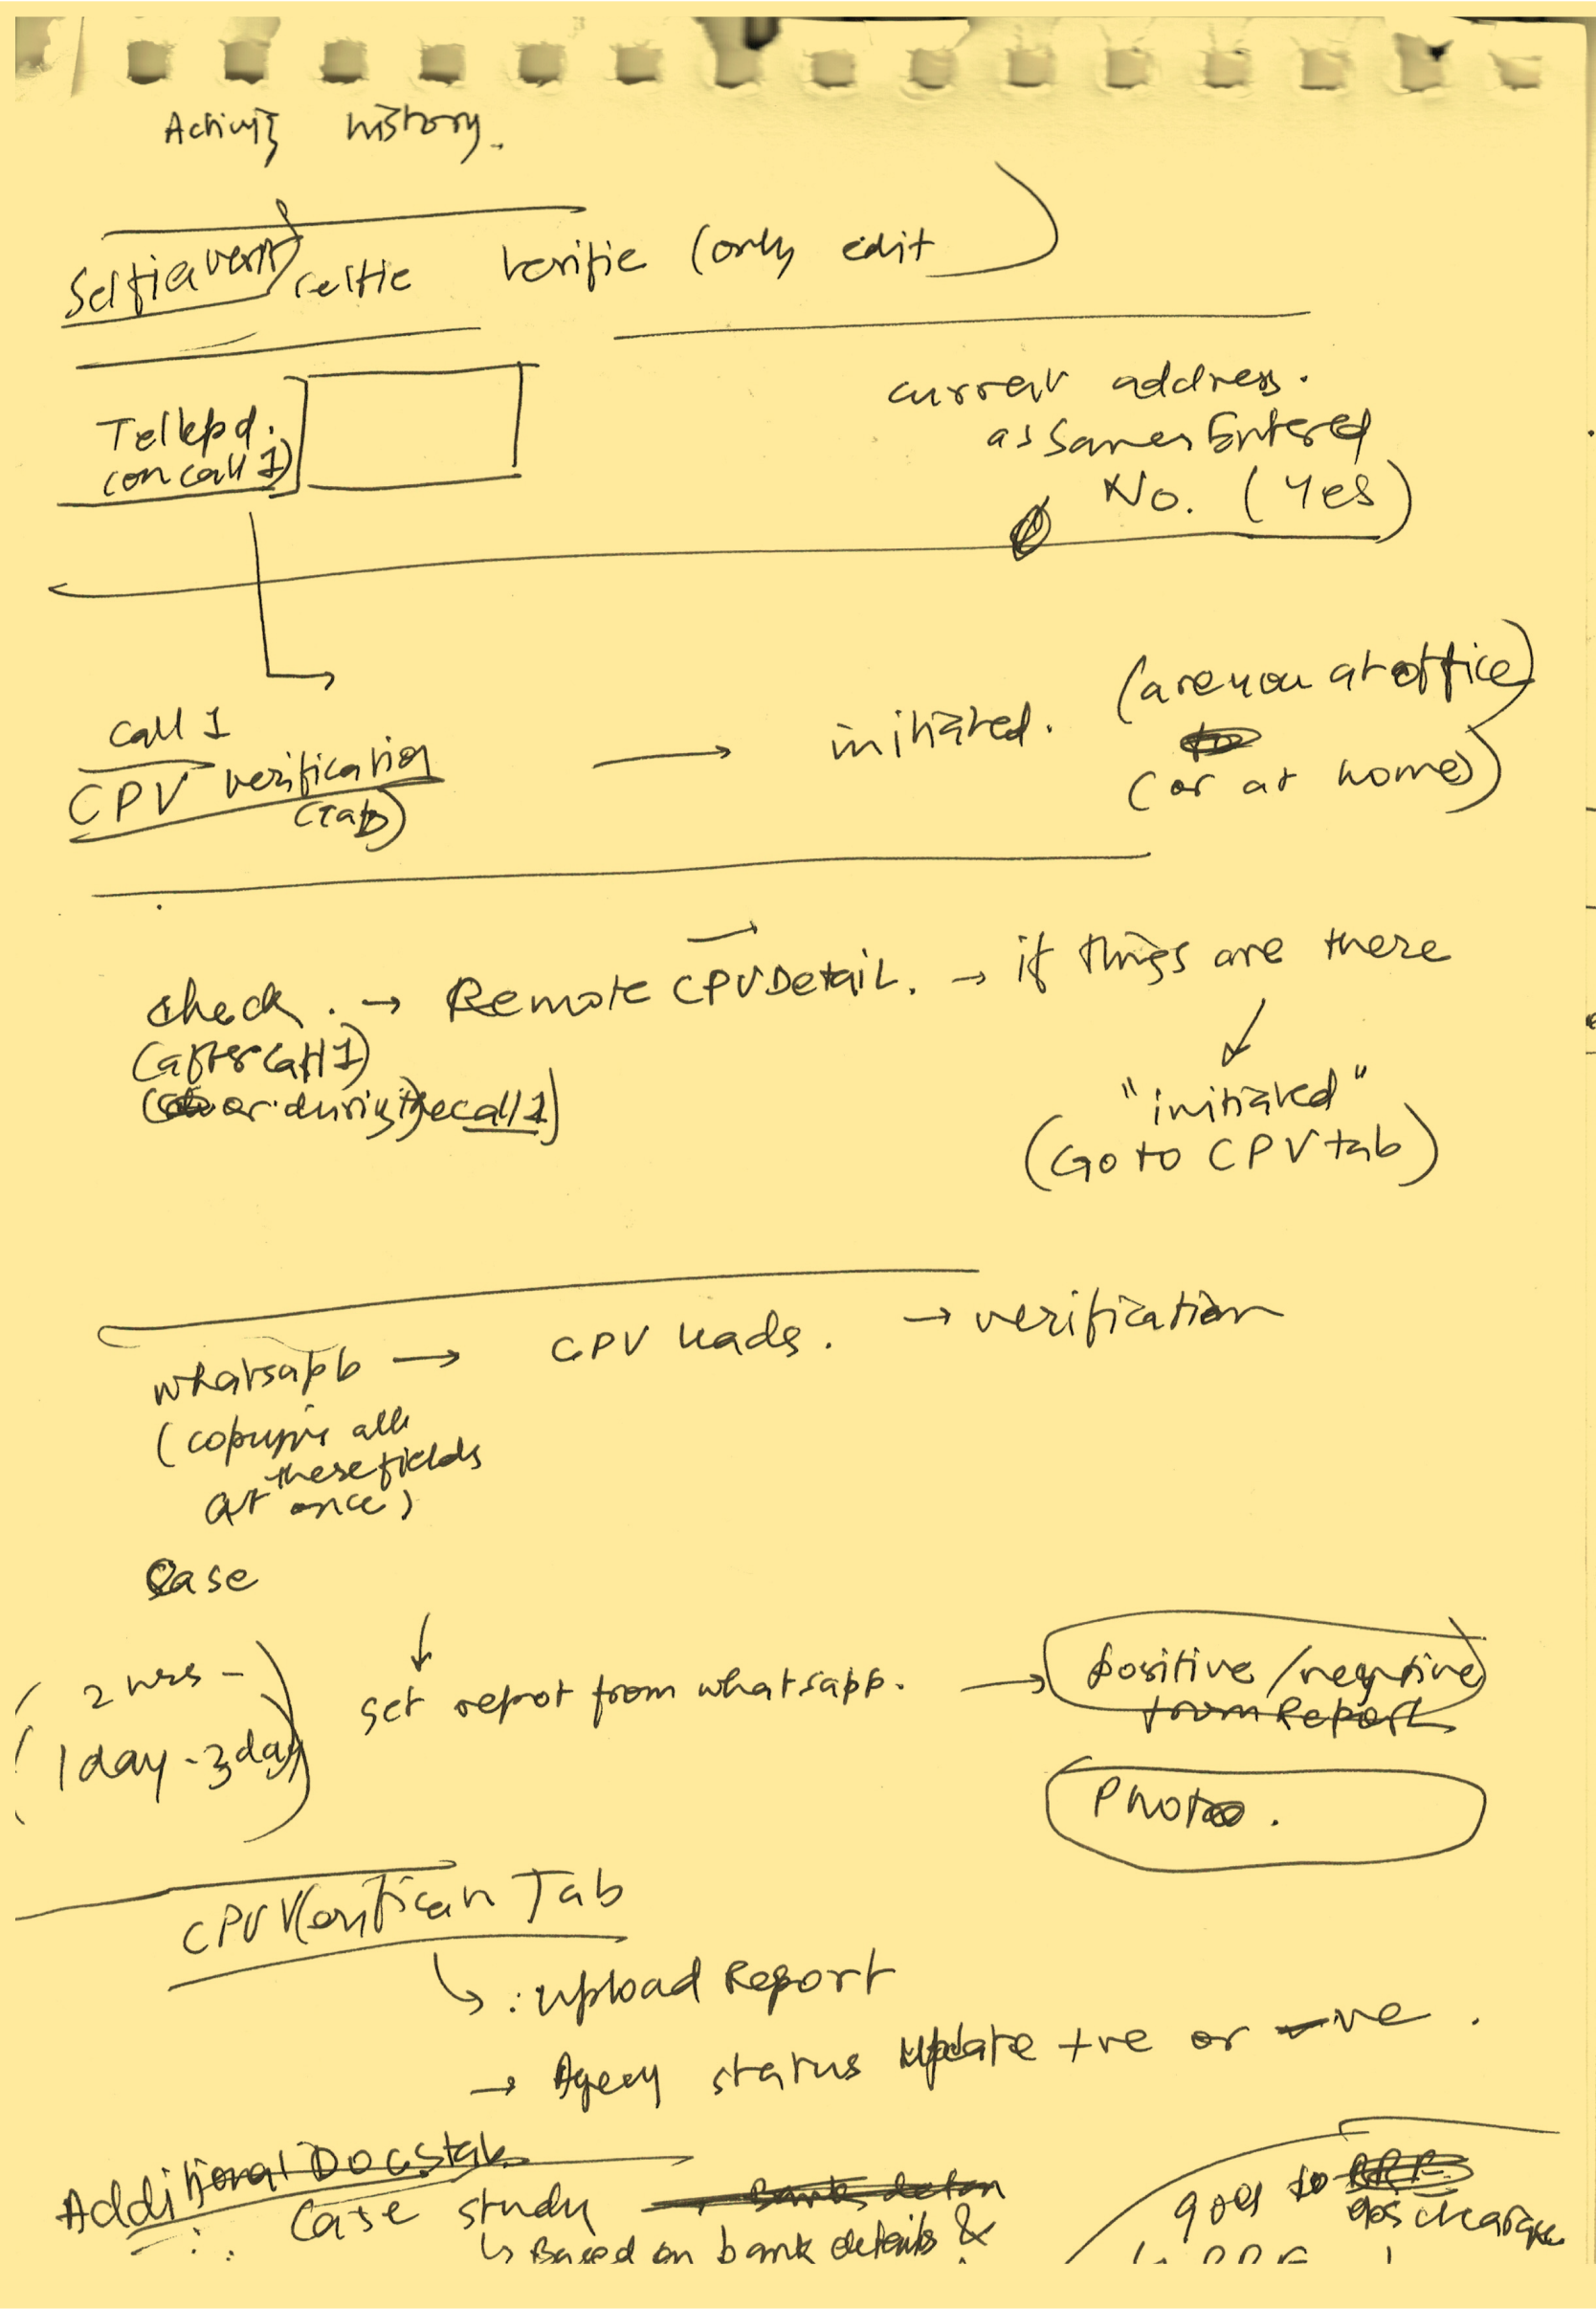 Activity history.
Selfie verif
selfie verifie (only edit)
Tellepd.
(on call 1)
current address.
as Sames Entered
No. (Yes)
call 1
CPV verification
(Tab)
→ initiated. (are you at office)
(or at home)
check. → Remote CPV Detail. → if things are there
(after call 1)
(or during the call 1)
"initiated"
(Go to CPV tab)
whatsapp → CPV leads. → verification
(copying all
these fields
at once)
Case
(2 hrs -
1 day - 3 day)
Get repot from whatsapp. → positive/negative
from Report
Photo.
CPV Verifican Tab
: upload Report
→ Agecy status update +ve or -ve.
Additional Docs tab
Case study → Bank
↳ Based on bank details &
goes to